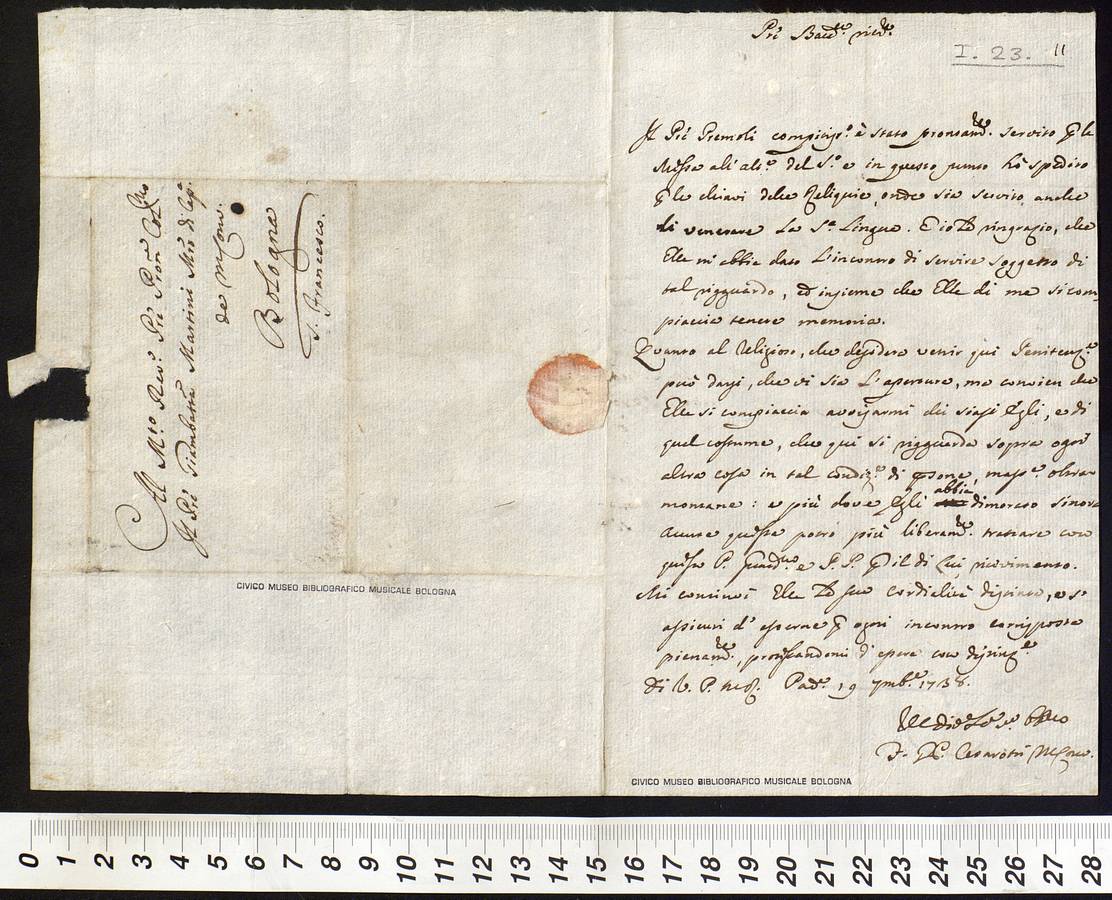 Al M.to Rev.o Pre Pron Col.mo
Il Pre Giambatta Martini Mro di Cap.a
de M. Conv.
Bologna
S. Francesco.
CIVICO MUSEO BIBLIOGRAFICO MUSICALE BOLOGNA
I. 23. 11
Il Pre Premoli è stato prontam.te servito per le
Messe all' alt.e del S.o e in questo punto hò spedito
per le chiavi delle Reliquie, onde sia servito anche
di venerare La S.a Lingua. E io La ringrazio, che
Ella m'abbia dato L'incontro di servire soggetto di
tal rigguardo, ed insieme che Ella di me si com
piaccia tenere memoria.
Quanto al Religioso, che desidera venir quì Penitenz.e
può darsi, che vi sia L'apertura, ma convien che
Ella si compiaccia avvisarmi dei Egli, e di
qual costume, che quì si rigguarda sopra ogni
altra cosa in tal condiz.e di psone, mass.e oltra
montane: e più dove Egli abbia dimorato sinora
Avute queste potrò più liberam.te trattare con
questo P. Guard.no e P. P. per il di Lui ricevimento.
Mi continui Ella La sua cordialità, e s'
assicuri d' esserne per ogni incontro corrisposta
pienam.te, protestandomi d' essere con
Di V. P. M. R. Pad.a 19 7mb.e 1738.
F. Cesarotti M. Conv.
CIVICO MUSEO BIBLIOGRAFICO MUSICALE BOLOGNA
0 1 2 3 4 5 6 7 8 9 10 11 12 13 14 15 16 17 18 19 20 21 22 23 24 25 26 27 28